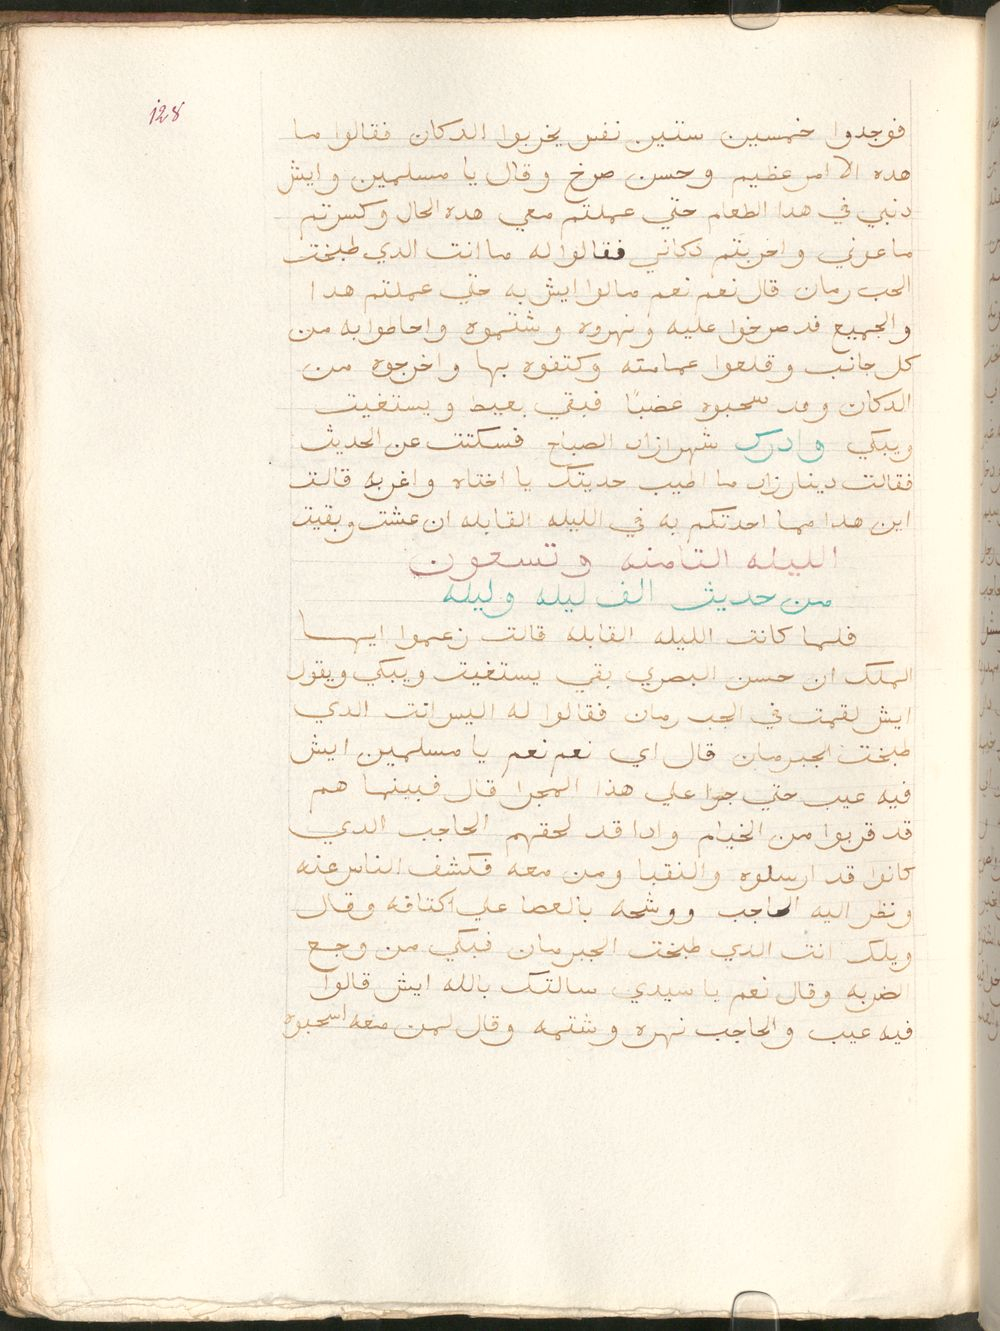 128
فوجدوا خمسين ستين نفس يخربوا الدكان فقالوا ما
هده الا امر عظيم وحسن صرخ وقال يا مسلمين وايش
دنبي في هدا الطعام حتي عملتم معي هده الحال وكسرتم
ماعوني واخربتم دكاني فقالوا له ما انت الدي طبخت
الحب رمان قال نعم نعم مالوا ايش به حتي عملتم هدا
والجميع قد صرخوا عليه ونهروه وشتموه واحاطوا به من
كل جانب وقلعوا عمامته وكتفوه بها واخرجوه من
الدكان وقد سحبوه غضبًا فبقي يعيط ويستغيت
ويبكي وادرك شهرازاد الصباح فسكتت عن الحديث
فقالت دينارزاد ما اطيب حديتك يا اختاه واغربه قالت
اين هدا مما احدتكم به في الليله القابله ان عشت وبقيت
الليله التامنه وتسعون
من حديث الف ليله وليله
فلما كانت الليله القابله قالت زعموا ايها
الملك ان حسن البصري بقي يستغيت ويبكي ويقول
ايش لقمت في الحب رمان فقالوا له اليس انت الدي
طبخت الحبرمان قال اي نعم نعم يا مسلمين ايش
فيه عيب حتي جرا علي هذا المجرا قال فبينها هم
قد قربوا من الخيام وادا قد لحقهم الحاجب الدي
كانوا قد ارسلوه والنقبا ومن معه فكشف الناس عنه
ونظر اليه الحاجب ووشحه بالعصا علي اكتافه وقال
ويلك انت الدي طبخت الحبرمان فبكي من وجع
الضربه وقال نعم يا سيدي سالتك بالله ايش قالوا
فيه عيب والحاجب نهره وشتمه وقال لمن معه اسحبوه